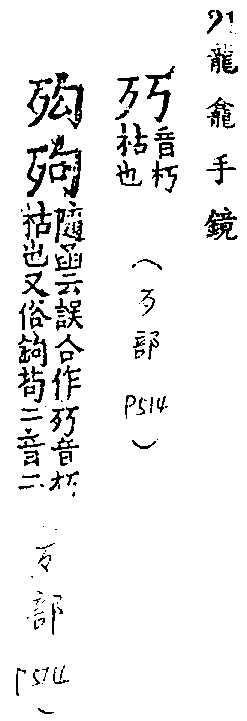 龍龕手鏡
㱙
音朽
枯也
(歹部 P514)
隨函云誤合作㱙音朽
枯也又俗鉤苟二音二
(歹部 P514)